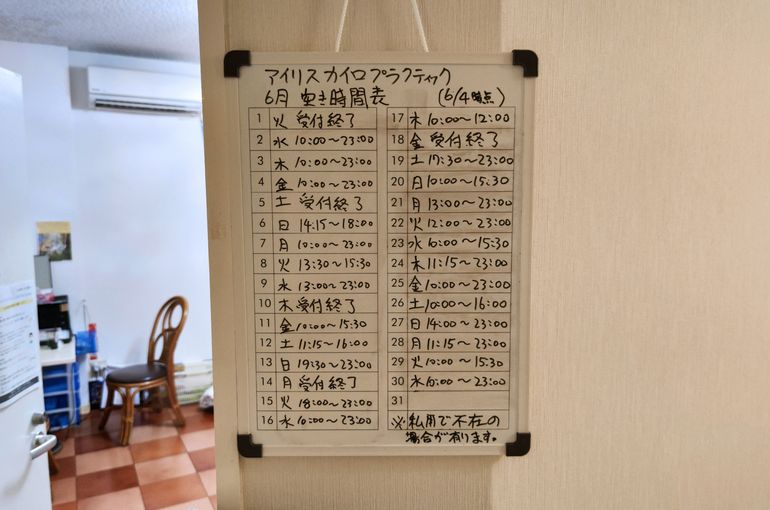 アイリスカイロプラクティック
6月 空き時間表 (6/4時点)
1 火 受付終了
2 水 10:00〜23:00
3 木 10:00〜23:00
4 金 10:00〜23:00
5 土 受付終了
6 日 14:15〜18:00
7 月 10:00〜23:00
8 火 13:30〜15:30
9 水 13:00〜23:00
10 木 受付終了
11 金 10:00〜15:30
12 土 11:15〜16:00
13 日 19:30〜23:00
14 月 受付終了
15 火 18:00〜23:00
16 水 10:00〜23:00
17 木 10:00〜12:00
18 金 受付終了
19 土 17:30〜23:00
20 日 10:00〜15:30
21 月 13:00〜23:00
22 火 12:00〜23:00
23 水 10:00〜15:30
24 木 11:15〜23:00
25 金 10:00〜23:00
26 土 10:00〜16:00
27 日 14:00〜23:00
28 月 11:15〜23:00
29 火 10:00〜15:30
30 水 10:00〜23:00
31
※私用で不在の
場合が有ります。